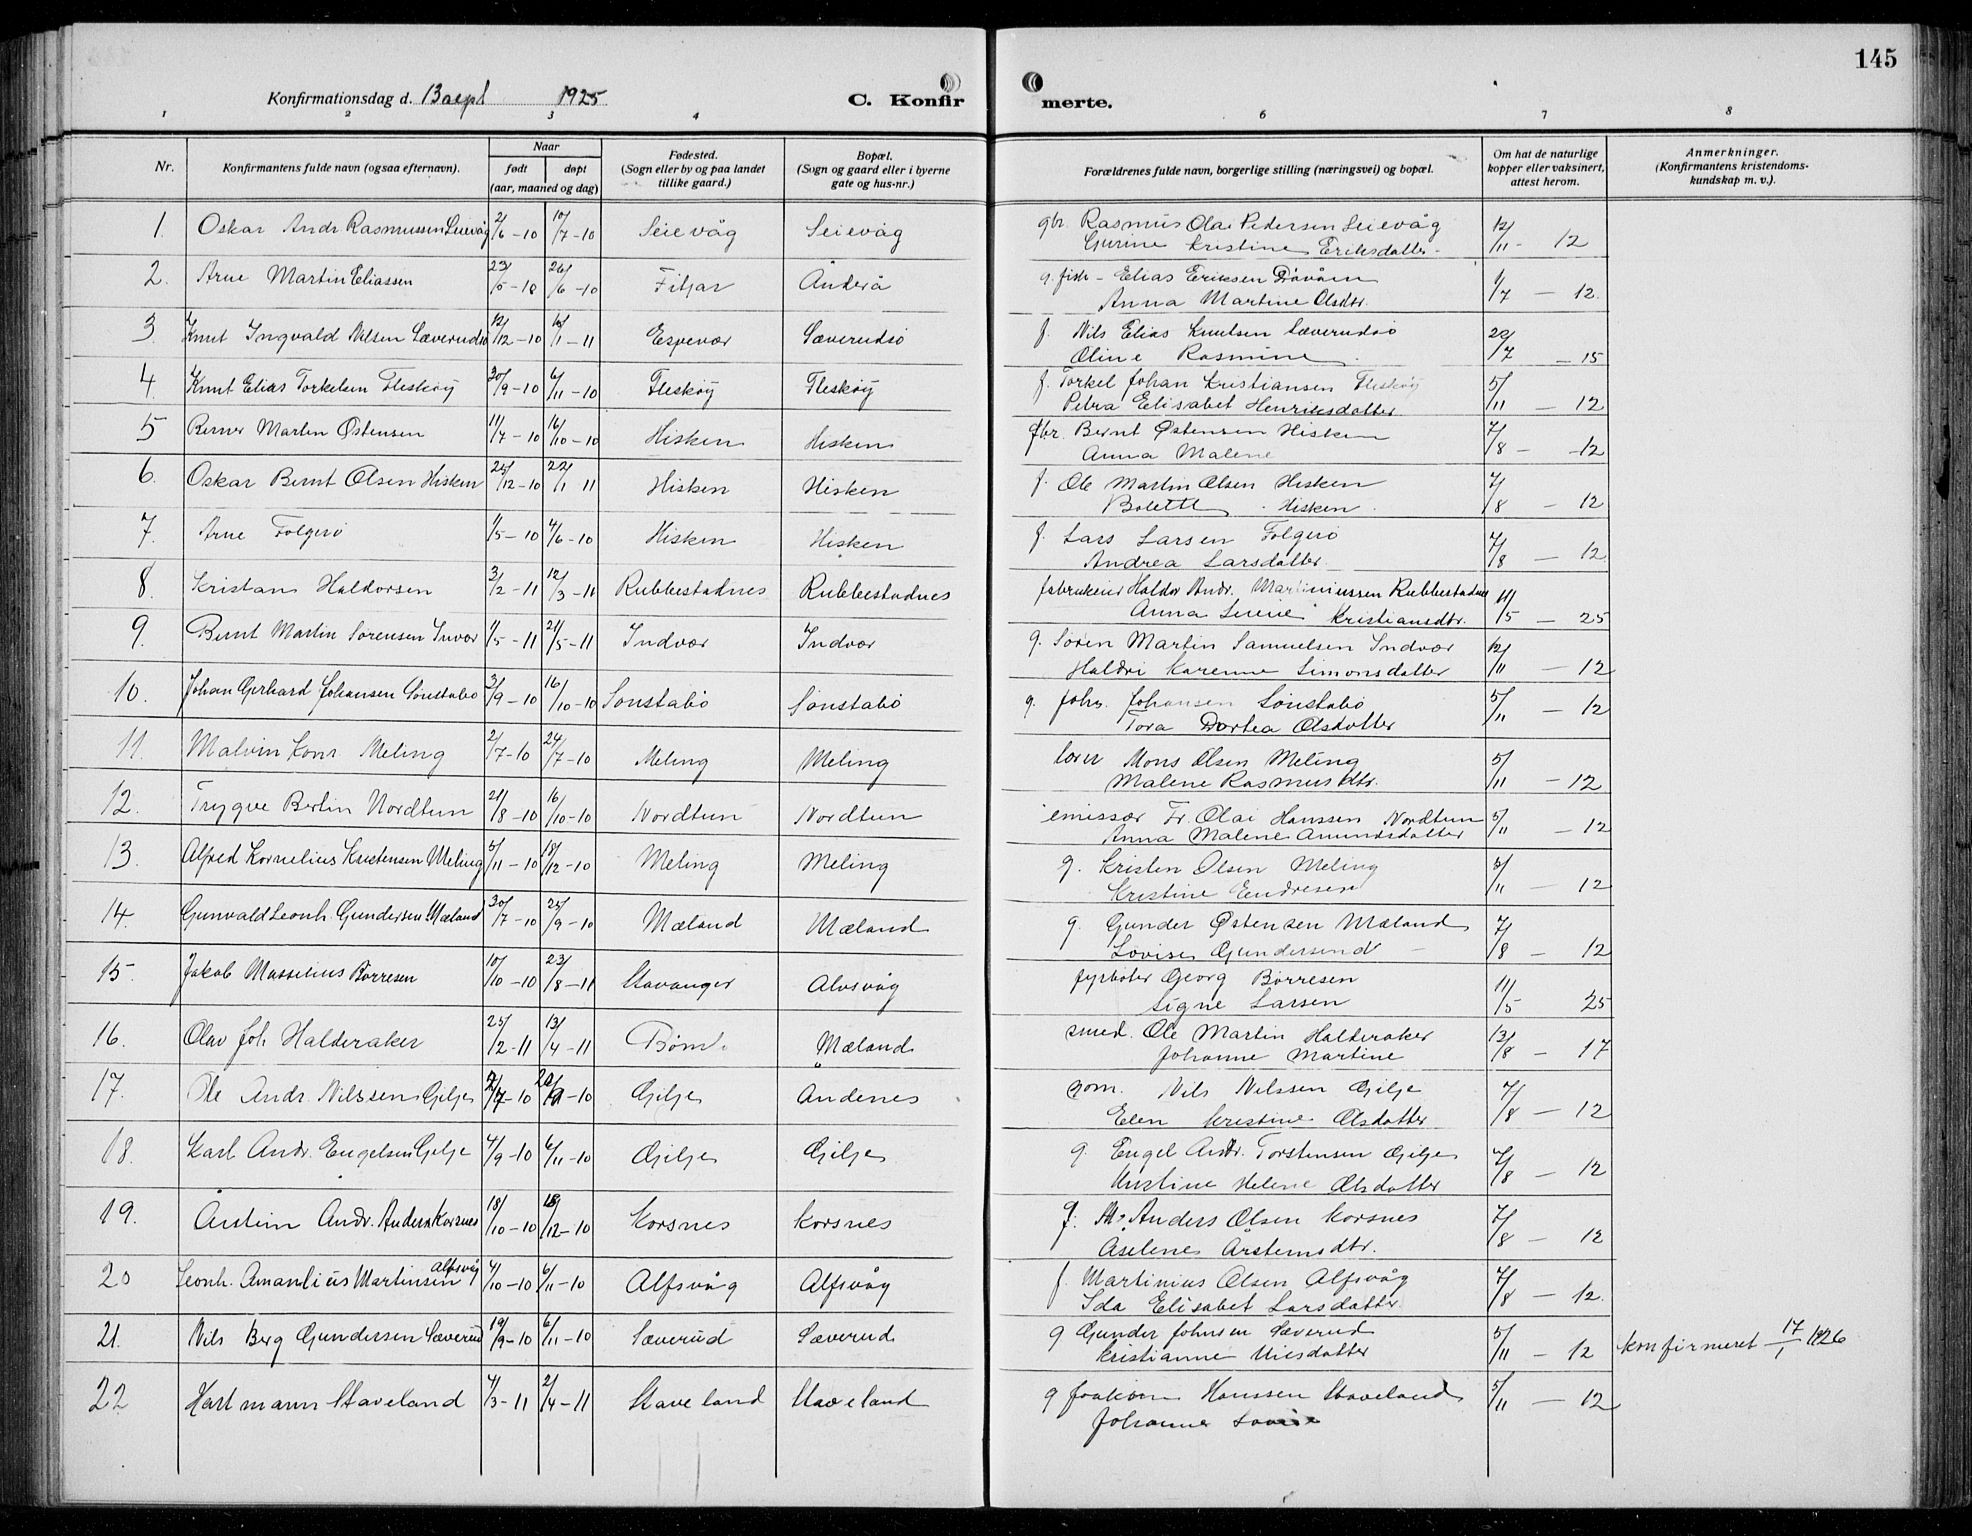 145
Konfirmationsdag d. 13 sept 1925 C. Konfirmerte.
1 2 3 4 6 7 8
Nr. Konfirmantens fulde navn (ogsaa efternavn). Naar født døpt (aar, maaned og dag) Fødested. (Sogn eller by og paa landet tillike gaard.) Bopæl. (Sogn og gaard eller i byerne gate og hus-nr.) Forældrenes fulde navn, borgerlige stilling (næringsvei) og bopæl. Om hat de naturlige kopper eller vaksinert, attest herom. Anmerkninger. (Konfirmantens kristendoms-kundskap m. v.).
1. Oskar Andr Rasmussen Seievåg 2/6-10 10/7-10 Seievåg Seievåg gbr. Rasmus Olai Pedersen Seievåg 12/11 - 12
Gurine Kristine Eriksdatter
2. Arne Martin Eliassen 26/6-10 Fitjar g. fisk - Elias Eriksen 1/7 - 12.
Anna Martine Olsdtr.
3. Knut Ingvald Nilsen Sæverudsø 12/12-10 Espevær Sæverudsø f. Nils Elias Knutsen Sæverudsø 22/7 - 15
Oline Rasmine
4 Knut Elias Torkelsen Fleskøy 30/9-10 6/11-10 Fleskøy Fleskøy f. Torkel Johan Kristiansen Fleskøy 5/11 - 12
Petra Elisabet Henriksdatter
5 Berner Martin Østensen 11/7-10 16/10-10 Hisken Hisken gbr. Bernt Østensen Hisken 7/8 - 12
Anna Malene
6. Oskar Bernt Olsen Hisken 25/12-10 22/1 11 Hisken Hisken f. Ole Martin Olsen Hisken 7/8 - 12
Bolette Hisken
7. Arne Folgerø 1/5-10 4/6-10 Hisken Hisken f. Lars Larsen Folgerø 7/8 - 12
Andrea Larsdatter
8. Kristian Haldorsen 3/2-11 12/3-11 Rubbestadnes Rubbestadnes fabrikeier Haldor Andr. Martiniussen Rubbestadnes 11/5 - 25
Anna Kristiansdtr.
9. Bernt Martin Sørensen Invær 1/5-11 21/5-11 Indvær Indvær g. Søren Martin Samuelsen Indvær 12/11 - 12
Haldri Karenne Simonsdatter
10. Johan Gerhard Johansen Sønstabø 3/9-10 16/10-10 Sønstabø Sønstabø g. Johs. Johansen Sønstabø 5/11 - 12
Tora Dortea Olsdatter
11. Malvin Konr Meling 2/7-10 24/7-10 Meling Meling lærer Mons Olsen Meling 5/11 - 12
Malene Rasmusdtr.
12. Trygve Bertin Nordtun 21/8-10 16/10-10 Nordtun Nordtun emissær Fr. Olai Hanssen Nordtun 5/11 - 12
Anna Malene Amundsdatter
13. Alfred Kornelius Kristensen Meling 5/11-10 18/12-10 Meling Meling g. Kristen Olsen Meling 5/11 - 12
Kristine Endresen
14. Gunvald Leonh. Gundersen Mæland 30/7-10 25/9-10 Mæland Mæland g. Gunder Østensen Mæland 7/8 - 12
Lovise Gundersend
15. Jakob Masselius Børresen 10/10-10 23/8-11 Stavanger Alvsvåg fyrbøter Georg Børresen 11/5 25
Signe Larsen
16. Olav Joh. Halderaker 25/2-11 13/4-11 Bømlo Mæland smed. Ole Martin Halderaker 13/8 - 17
Johanne Martine
17. Ole Andr. Nilssen Gilje Gilje Andenes Nils Nilssen Gilje 7/8 - 12
Elen Kristine Olsdatter
18. Karl Andr. Engelsen Gilje 4/9-10 6/11-10 Gilje Gilje g. Engel Andr. Torstensen Gilje 7/8 - 12
Kristine Helene Olsdatter
19. Årstein Andr. Anders Korsnes 18/10-10 Korsnes Korsnes g. Anders Olsen Korsnes 7/8 - 12
Aselene Årsteinsdtr.
20 Leonh. Amandius Martinsen Alfsvåg 4/10-10 6/11-10 Alfsvåg Alfsvåg f. Martinius Olsen Alfsvåg 7/8 - 12.
Ida Elisabet Larsdatter
21. Nils Berg Gundersen Sæverud 19/9-10 6/11-10 Sæverud Sæverud g Gunder Johnsen Sæverud 5/11 - 12 Konfirmeret 17/1 1926
Kristianne Nilsdatter
22 Hartmann Staveland 4/3-11 2/4-11 Staveland Staveland g Joakim Hanssen Staveland 5/11 - 12
Johanne Lovise